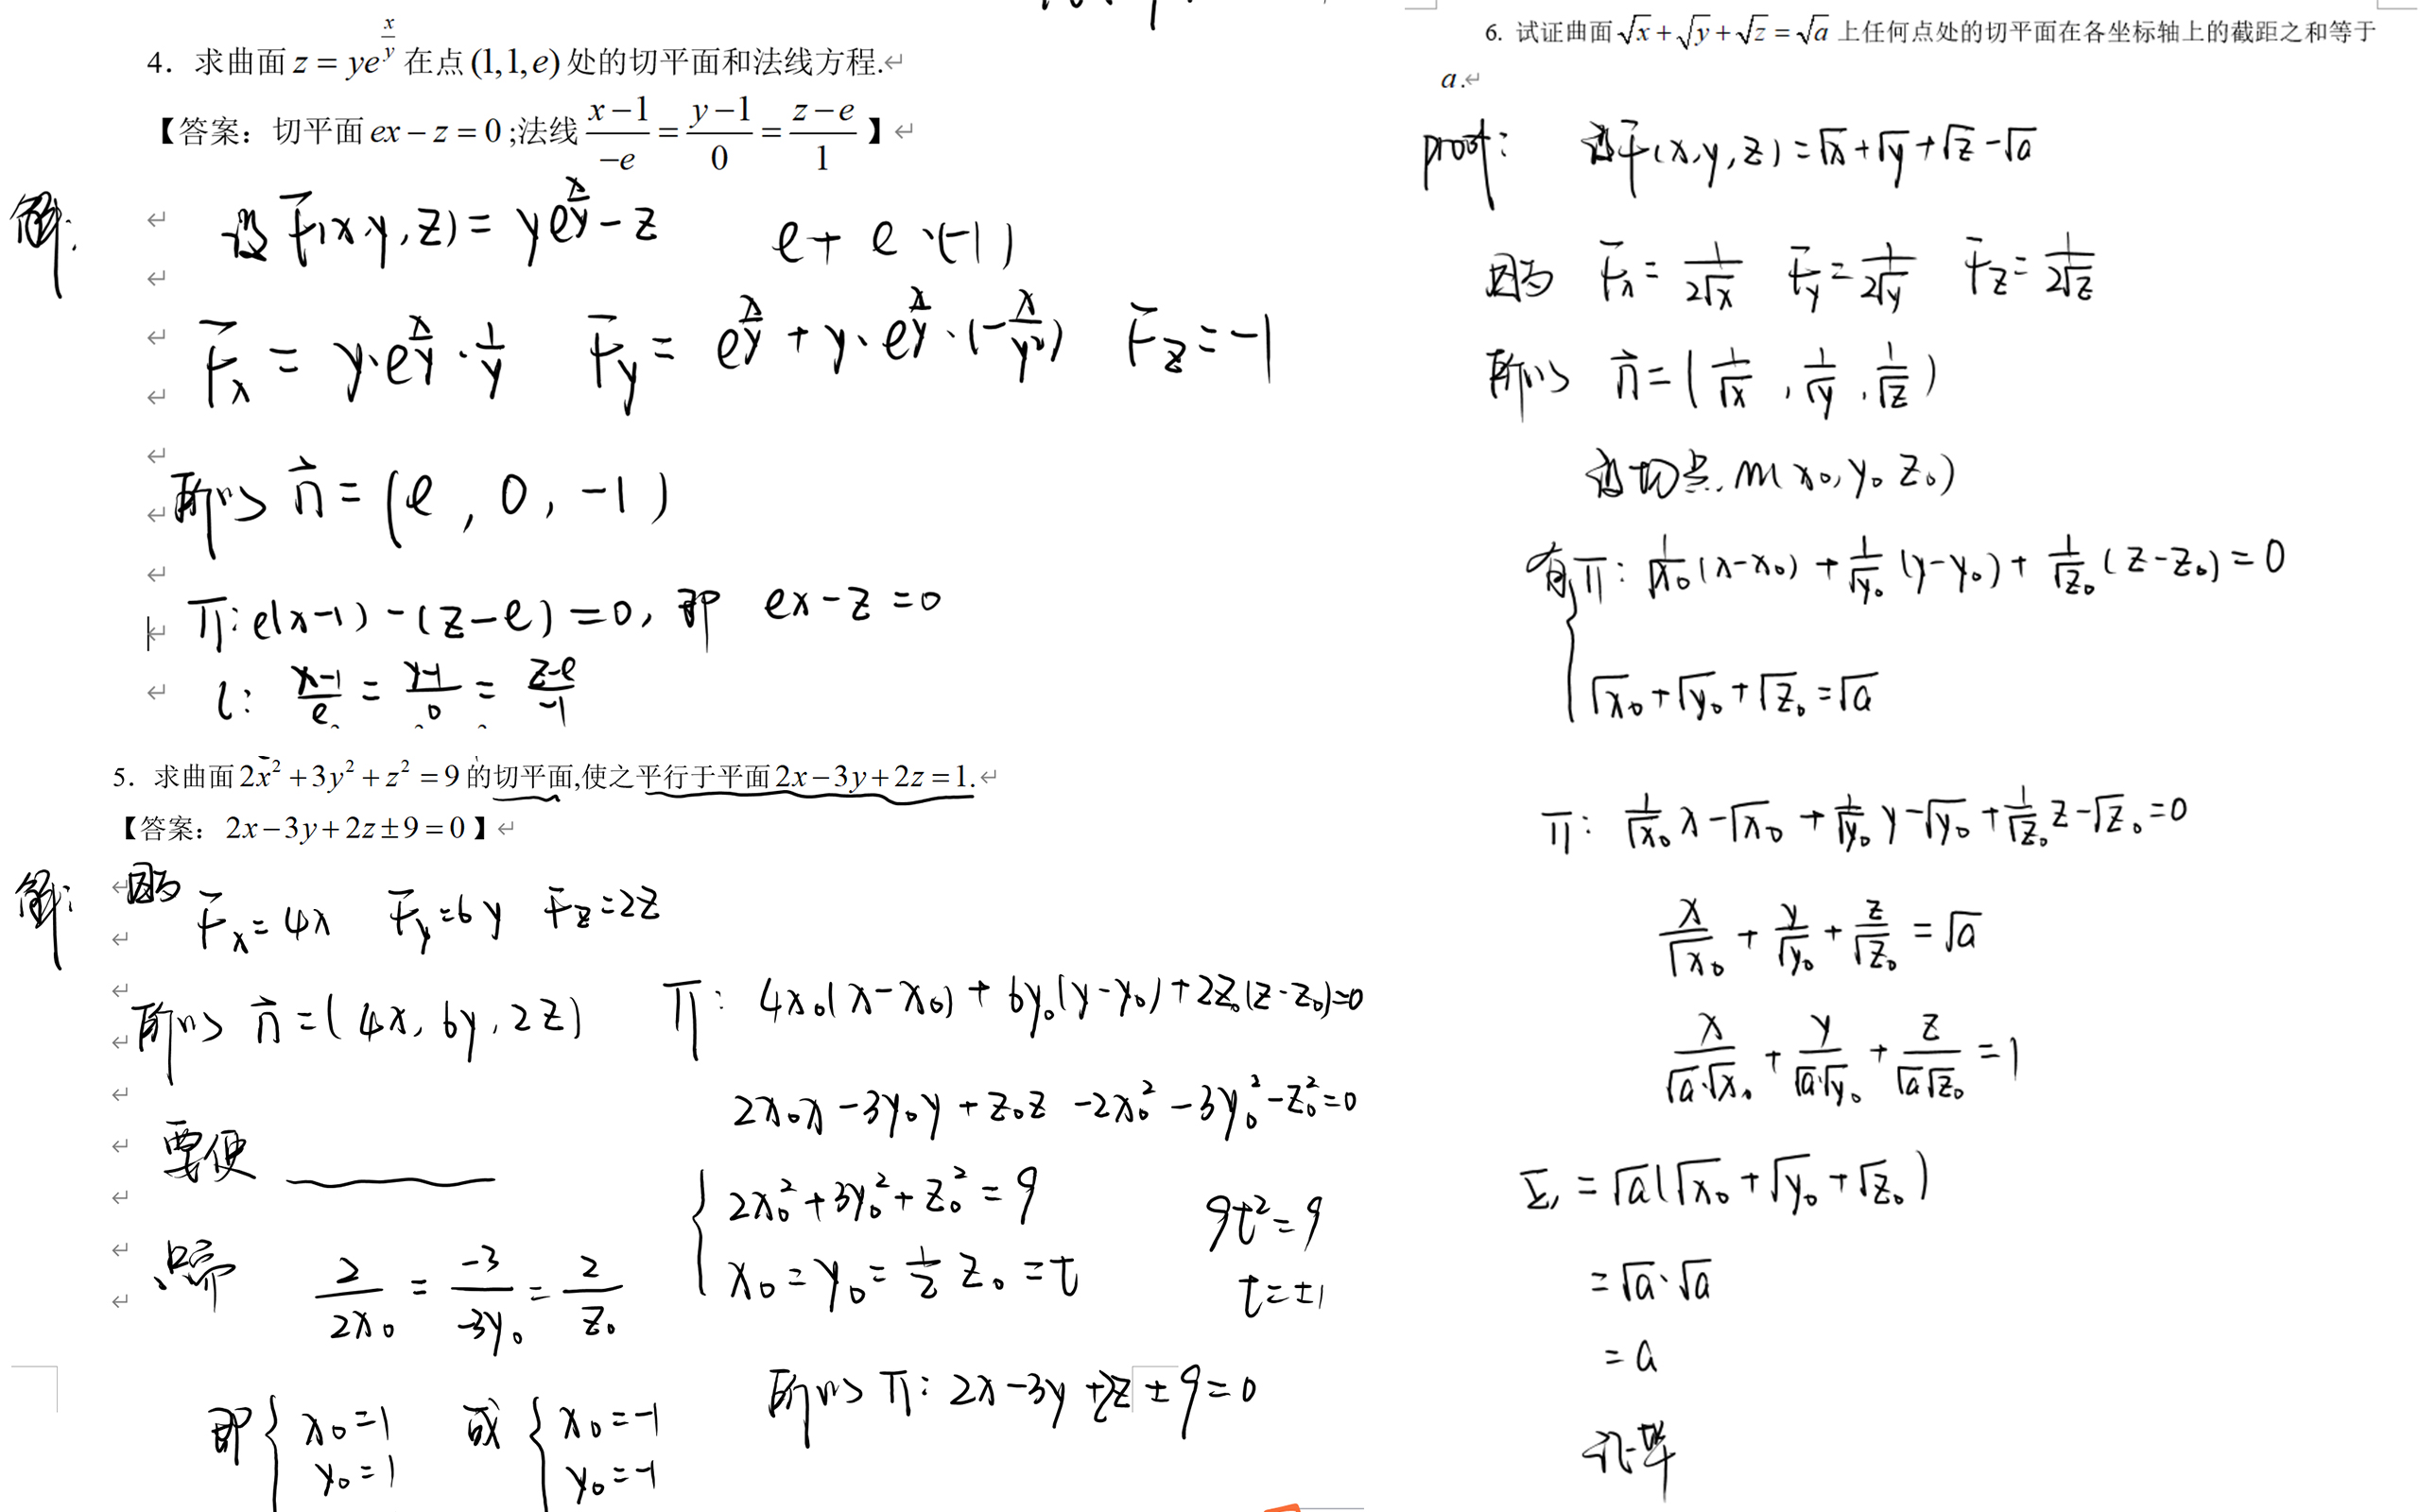 4. 求曲面 z = ye^{x/y} 在点 (1,1,e) 处的切平面和法线方程.
【答案：切平面 ex − z = 0 ;法线 (x−1)/(−e) = (y−1)/0 = (z−e)/1 】
解: 设 F(x,y,z) = ye^{x/y} − z    e + e·(−1)
F_x = y·e^{x/y}·1/y    F_y = e^{x/y} + y·e^{x/y}·(−x/y²)    F_z = −1
所以 n⃗ = (e, 0, −1)
π: e(x−1) − (z−e) = 0, 即 ex − z = 0
l: (x−1)/e = (y−1)/0 = (z−e)/−1
5. 求曲面 2x² + 3y² + z² = 9 的切平面,使之平行于平面 2x − 3y + 2z = 1.
【答案：2x − 3y + 2z ± 9 = 0 】
解: 因为 F_x = 4x    F_y = 6y    F_z = 2z
所以 n⃗ = (4x, 6y, 2z)
要使
只需 2/(2x₀) = −3/(−3y₀) = 2/z₀
即 { x₀ = 1
y₀ = 1
或 { x₀ = −1
y₀ = −1
π: 4x₀(x−x₀) + 6y₀(y−y₀) + 2z₀(z−z₀) = 0
2x₀x − 3y₀y + z₀z − 2x₀² − 3y₀² − z₀² = 0
{ 2x₀² + 3y₀² + z₀² = 9
x₀ = y₀ = 1/2 z₀ = t
9t² = 9
t = ±1
所以 π: 2x − 3y + 2z ± 9 = 0
6. 试证曲面 √x + √y + √z = √a 上任何点处的切平面在各坐标轴上的截距之和等于
a.
proof: 设 F(x,y,z) = √x + √y + √z − √a
因为 F_x = 1/(2√x)    F_y = 1/(2√y)    F_z = 1/(2√z)
所以 n⃗ = (1/√x, 1/√y, 1/√z)
设切点 M(x₀, y₀ z₀)
有 { π: 1/√x₀ (x−x₀) + 1/√y₀ (y−y₀) + 1/√z₀ (z−z₀) = 0
√x₀ + √y₀ + √z₀ = √a
π: 1/√x₀ x − √x₀ + 1/√y₀ y − √y₀ + 1/√z₀ z − √z₀ = 0
x/√x₀ + y/√y₀ + z/√z₀ = √a
x/(√a·√x₀) + y/(√a·√y₀) + z/(√a √z₀) = 1
Σ = √a(√x₀ + √y₀ + √z₀)
= √a·√a
= a
证毕